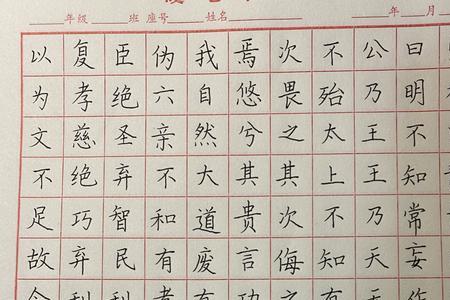 年级 班 座号 姓名 年 月
曰明不知常妄作
公乃王王乃天天
不殆太上不知有
次畏之其次侮之
焉悠兮其贵言功
我自然大道废有
伪六亲不和有孝
臣绝圣弃智民利
复孝慈绝巧弃利
以为文不足故令